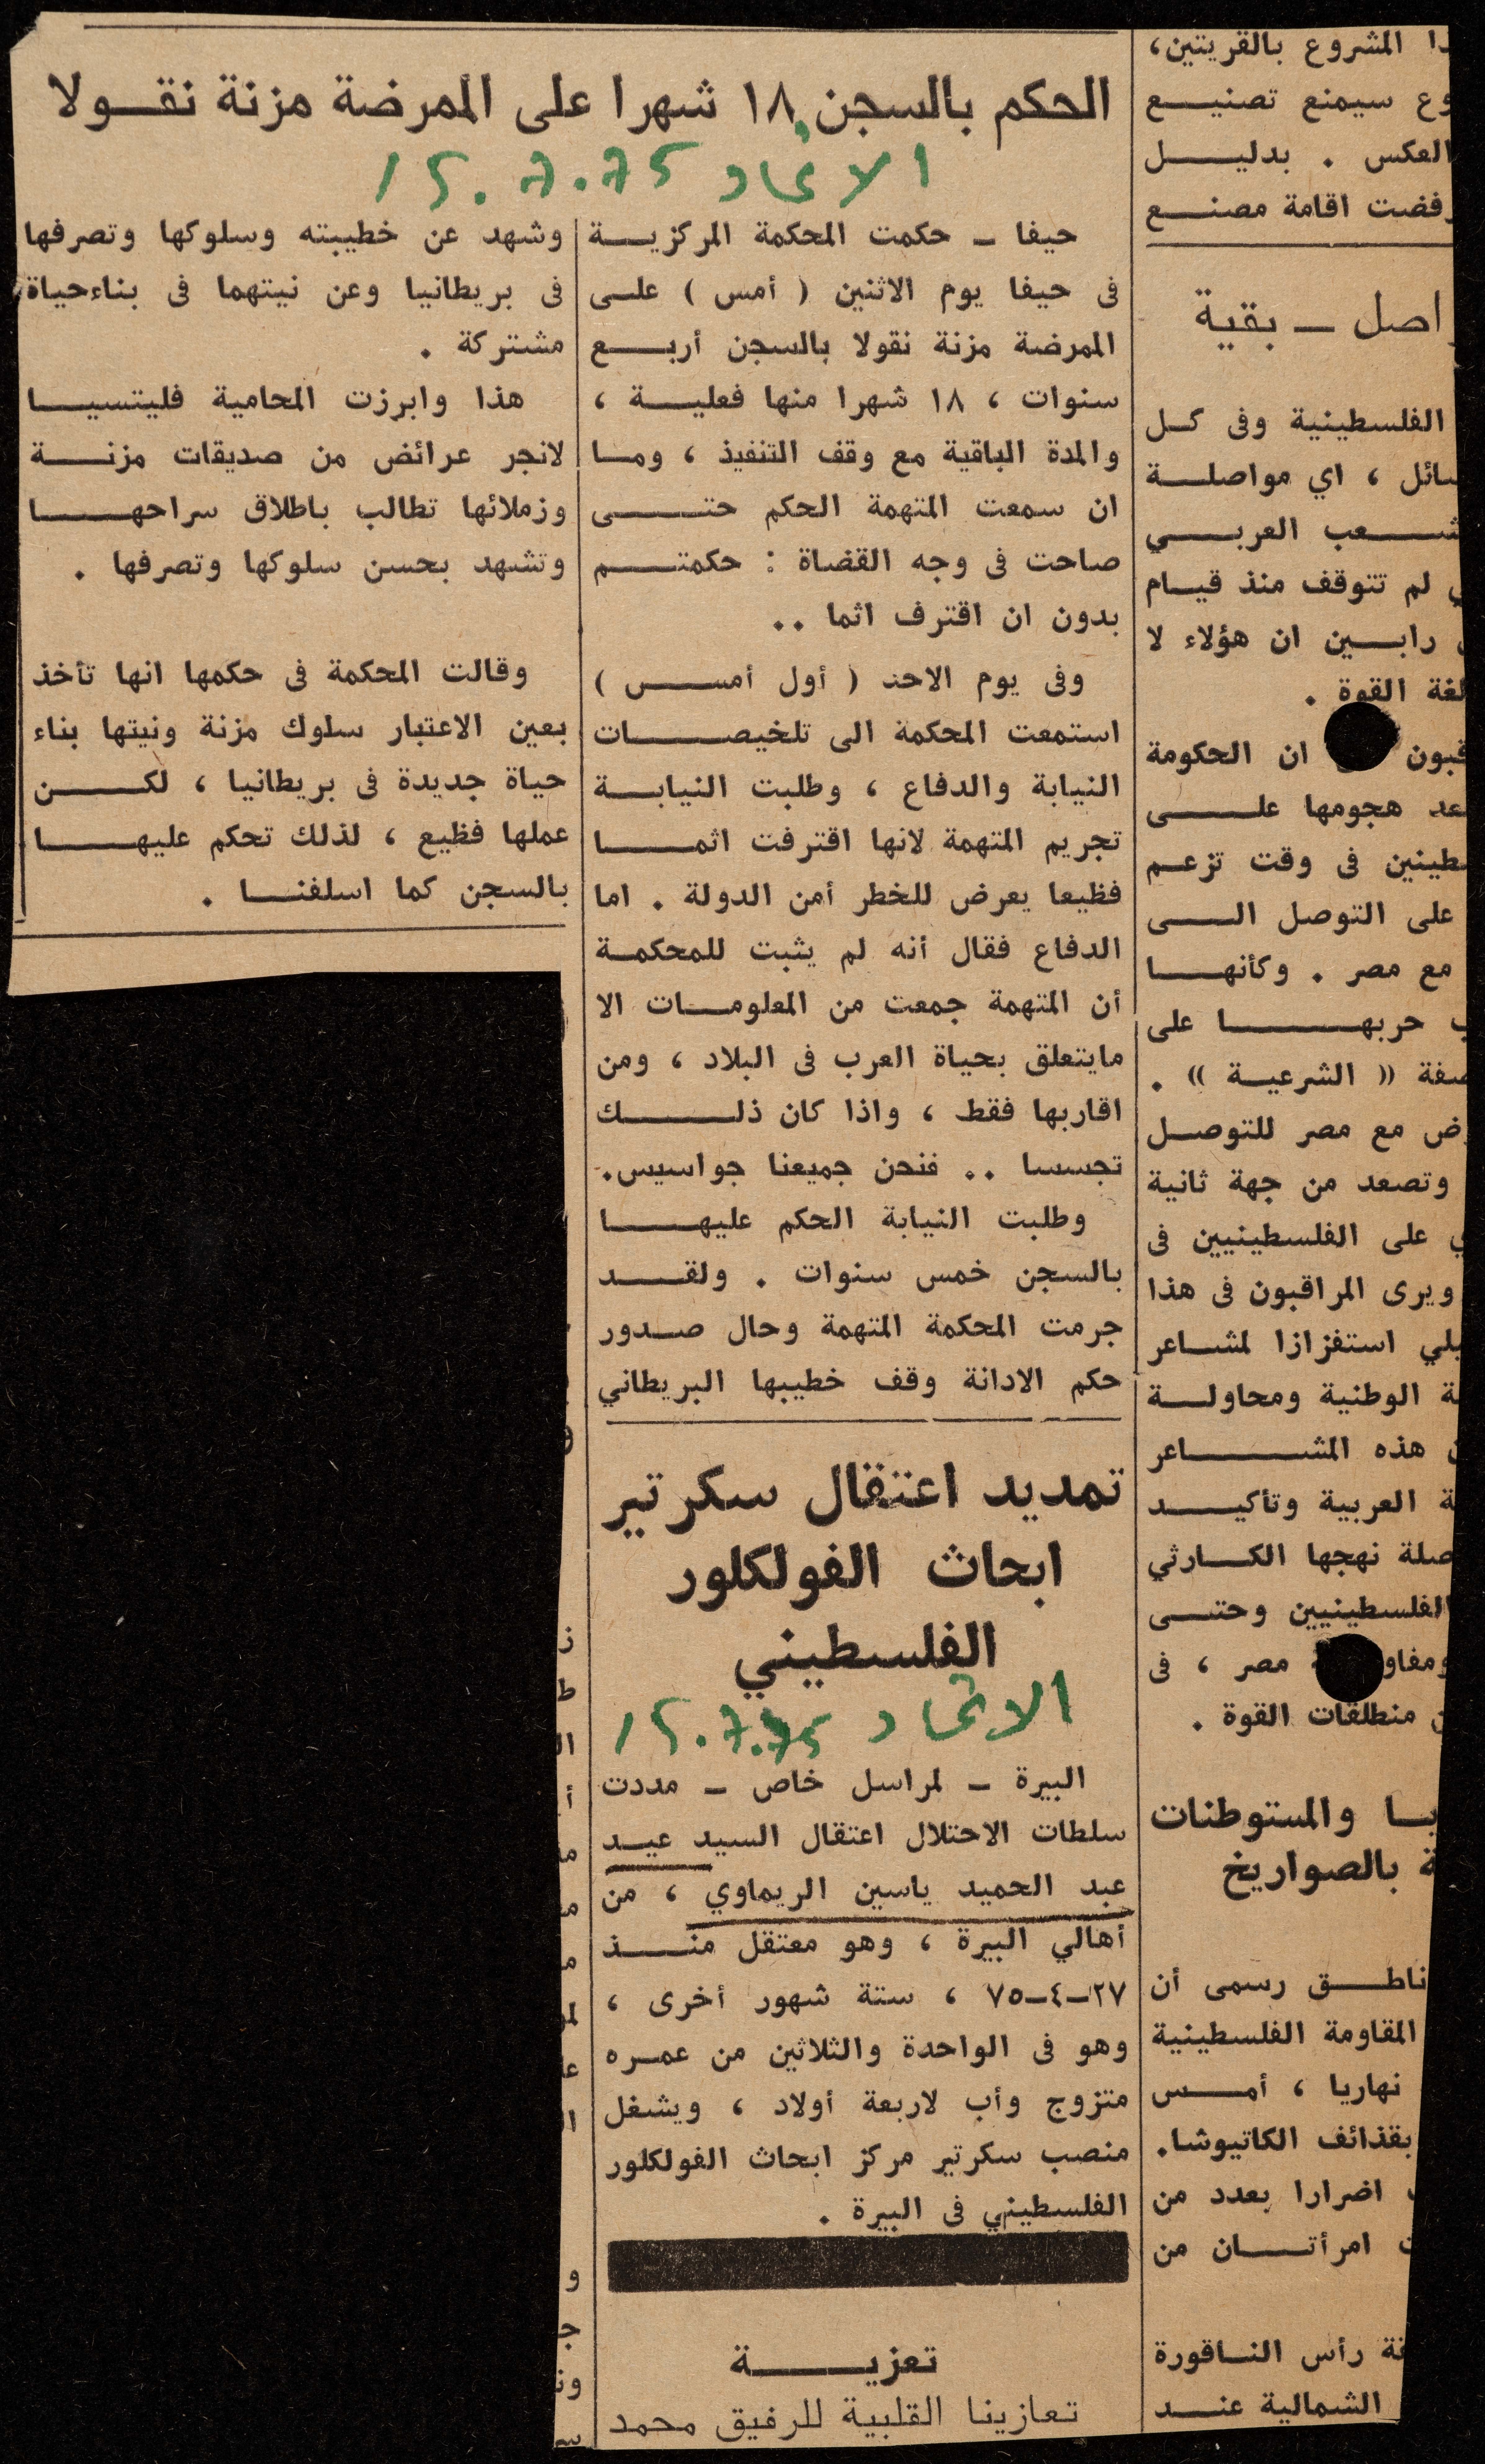 الحكم بالسجن ١٨ شهرا على الممرضة مزنة نقولا
الاتحاد 15.7.75
حيفا – حكمت المحكمة المركزية
فى حيفا يوم الاثنين ( أمس ) على
الممرضة مزنة نقولا بالسجن أربع
سنوات ، ١٨ شهرا منها فعلية ،
والمدة الباقية مع وقف التنفيذ ، وما
ان سمعت المتهمة الحكم حتى
صاحت فى وجه القضاة : حكمتم
بدون ان اقترف اثما ..
وفى يوم الاحد ( أول أمس )
استمعت المحكمة الى تلخيصات
النيابة والدفاع ، وطلبت النيابة
تجريم المتهمة لانها اقترفت اثما
فظيعا يعرض للخطر أمن الدولة . اما
الدفاع فقال أنه لم يثبت للمحكمة
أن المتهمة جمعت من المعلومات الا
مايتعلق بحياة العرب فى البلاد ، ومن
اقاربها فقط ، واذا كان ذلك
تجسسا .. فنحن جميعنا جواسيس.
وطلبت النيابة الحكم عليها
بالسجن خمس سنوات . ولقد
جرمت المحكمة المتهمة وحال صدور
حكم الادانة وقف خطيبها البريطاني
وشهد عن خطيبته وسلوكها وتصرفها
فى بريطانيا وعن نيتهما فى بناءحياة
مشتركة .
هذا وابرزت المحامية فليتسيا
لانجر عرائض من صديقات مزنة
وزملائها تطالب باطلاق سراحها
وتشهد بحسن سلوكها وتصرفها .
وقالت المحكمة فى حكمها انها تأخذ
بعين الاعتبار سلوك مزنة ونيتها بناء
حياة جديدة فى بريطانيا ، لكن
عملها فظيع ، لذلك تحكم عليها
بالسجن كما اسلفنا .
تمديد اعتقال سكرتير
ابحاث الفولكلور
الفلسطيني
الاتحاد 15.7.75
البيرة – لمراسل خاص – مددت
سلطات الاحتلال اعتقال السيد عيد
عبد الحميد ياسين الريماوي ، من
أهالي البيرة ، وهو معتقل منذ
٢٧–٤–٧٥ ، ستة شهور أخرى ،
وهو فى الواحدة والثلاثين من عمره
متزوج وأب لاربعة أولاد ، ويشغل
منصب سكرتير مركز ابحاث الفولكلور
الفلسطيني فى البيرة .
تعزية
تعازينا القلبية للرفيق محمد
المشروع بالقريتين،
سيمنع تصنيع
العكس . بدليل
اقامة مصنع
– بقية
الفلسطينية وفى كل
، اي مواصلة
العربي
لم تتوقف منذ قيام
رابين ان هؤلاء لا
القوة .
ان الحكومة
هجومها على
فى وقت تزعم
على التوصل الى
مع مصر . وكأنها
حربها على
« الشرعية » .
مع مصر للتوصل
وتصعد من جهة ثانية
على الفلسطينيين فى
ويرى المراقبون فى هذا
استفزازا لمشاعر
الوطنية ومحاولة
هذه المشاعر
العربية وتأكيد
نهجها الكارثي
الفلسطينيين وحتى
مصر ، فى
منطلقات القوة .
والمستوطنات
بالصواريخ
ناطق رسمى أن
المقاومة الفلسطينية
نهاريا ، أمس
بقذائف الكاتيوشا.
اضرارا بعدد من
امرأتان من
رأس الناقورة
الشمالية عند